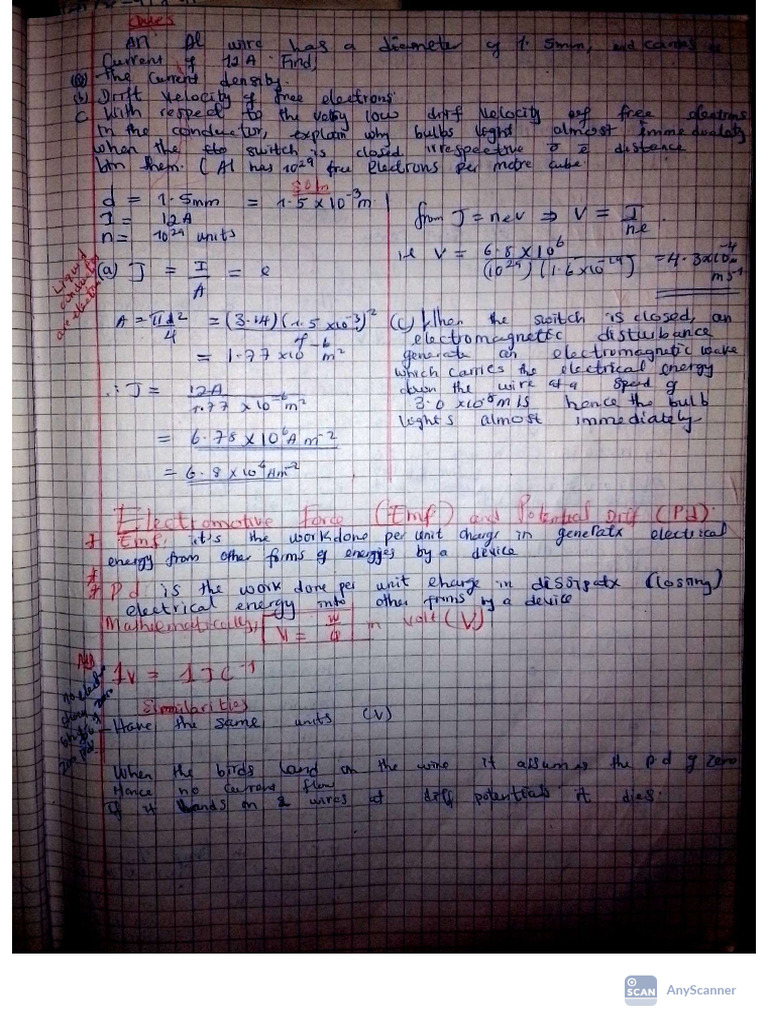 An Al wire has a diameter of 1.5mm, and carries a
Current of 12A. Find,
(a) The Current density.
(b) Drift velocity of free electrons.
c. With respect to the very low drift velocity of free electrons
in the conductor, explain why bulbs light almost immediately
when the switch is closed irrespective distance
btn them. (Al has 10²⁹ free electrons per metre cube.
Soln
d = 1.5mm = 1.5 x 10⁻³m
I = 12A
n = 10²⁹ units
Liquid
conductors
are electro
(a) J = I/A = e
A = πd²/4 = (3.14)(1.5 x10⁻³)²/4
= 1.77 x10⁻⁶ m²
∴ J = 12A / 1.77 x 10⁻⁶m²
= 6.78 x 10⁶A m⁻²
= 6.8 x 10⁶Am⁻²
from J = nev ⇒ V = J/ne.
ie V = 6.8 x 10⁶ / (10²⁹)(1.6x10⁻¹⁹) = 4.3x10⁻⁴
ms⁻¹
(c) When the switch is closed, an
electromagnetic disturbance
generate an electromagnetic wave
which carries the electrical energy
down the wire at a speed of
3.0 x10⁸m/s hence the bulb
lights almost immediately
Electromotive Force (Emf) and Potential Diff (Pd).
* Emf, it's the workdone per unit charge in generatx electrical
energy from other forms of energies by a device
* Pd is the work done per unit charge in dissipatx (losing)
electrical energy into other forms by a device
Mathematically, V = w/Q in volt (V)
1V = 1JC⁻¹
Similarities
- Have the same units (V)
When the birds land on the wire it assumes the pd of zero
Hence no current flow
If it lands on 2 wires at diff potentials it dies.
SCAN AnyScanner